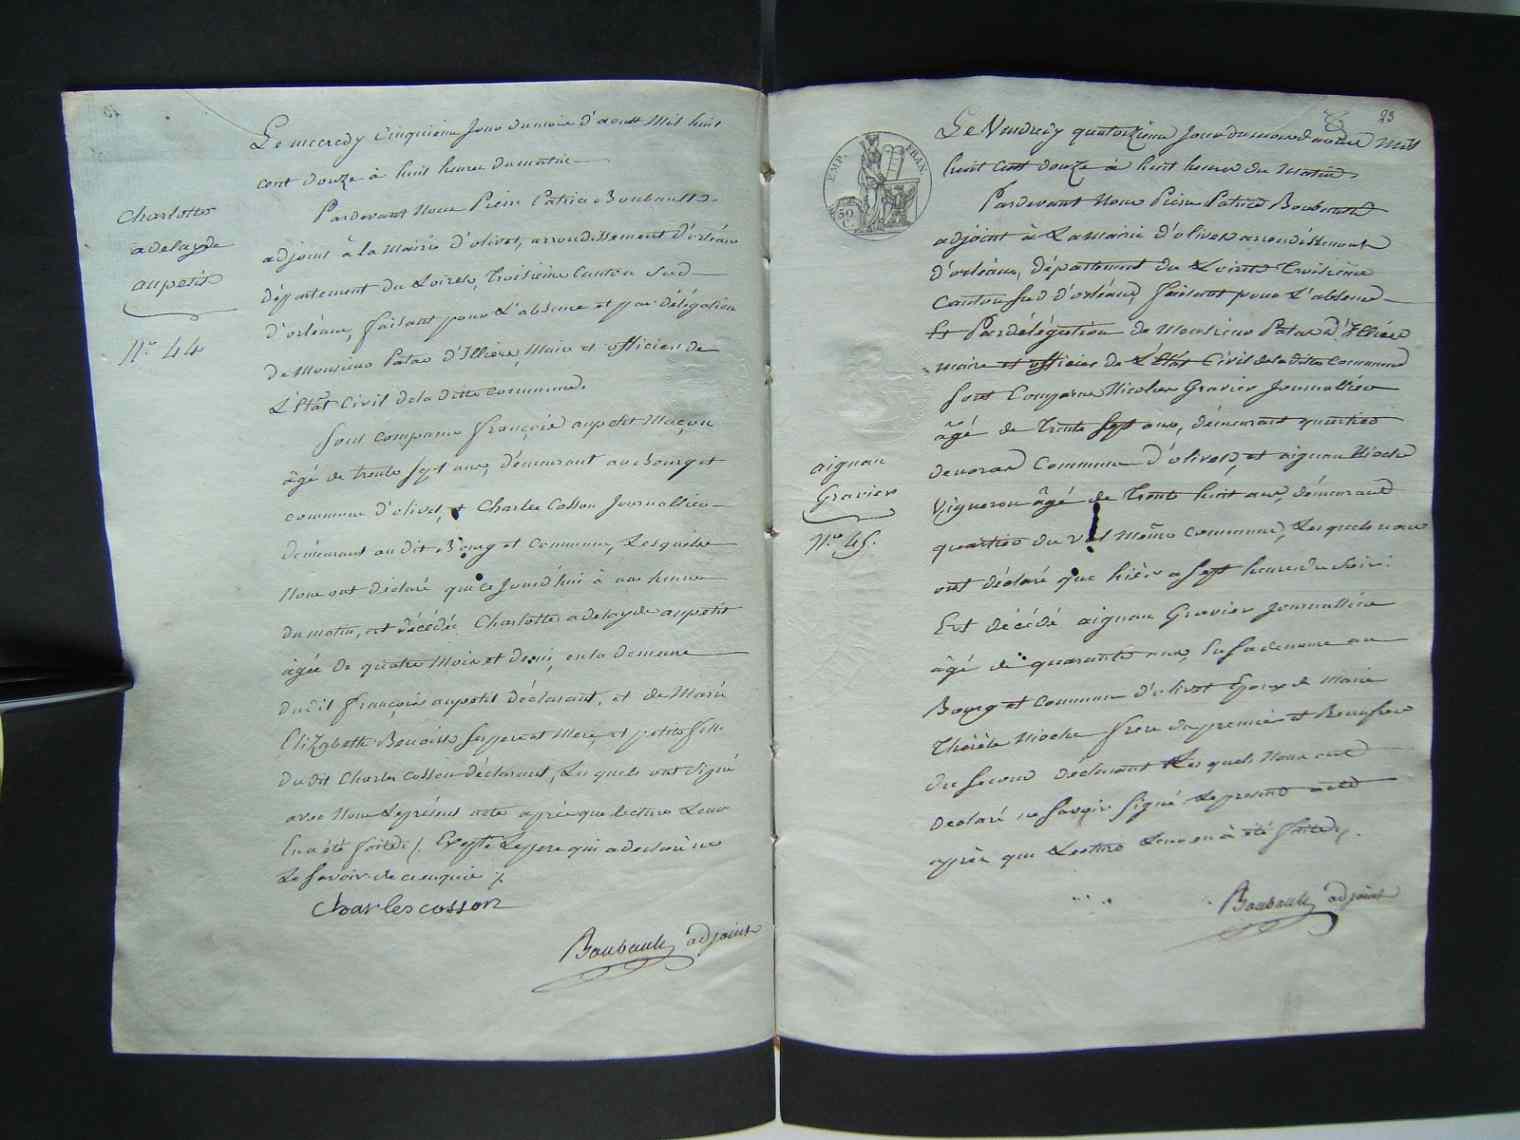 Le mecredy Cinquieme Jour du mois d'aoust Mil huit
cent douze à huit heures du matin
Pardevant Nous Pierre Patrice Boubault
adjoint à la Mairie d'olivet, arrondissement d'orléans
département du Loiret, Troisieme Canton Sud
d'orléans, faisant pour L'absence et par délégation
de Monsieur Patas d'Illiers, Maire et officier de
L'Etât Civil de la ditte Commune.
Charlotte
adelayde
aupetit
N.º 44
Sont comparus françois aupetit Maçon
âgé de trente Sept ans, demeurant au bourg et
commune d'olivet, et Charles Cosson Journallier
demeurant au dit Bourg et Commune, Lesquels
Nous ont déclaré que ce Jourd'hui à une heure
du matin, est décédée Charlotte adelayde aupetit
âgée de quatre Mois et demi, en la demeure
du dit françois aupetit déclarant, et de Marie
Elizabeth Benoist Ses pere et Mere, et petite fille
du dit Charles Cosson déclarant, Lesquels ont Signé
avec Nous Le présent acte après que lecture Leur
En a été faite /. Excepté Le pere qui a déclaré ne
Le Savoir de ce enquis /.
Charles cosson
Boubault adjoint
23
EMP. FRAN.
50
C.
Le Vendredy quatorzieme Jour du mois d'aoust Mil
huit Cent douze à huit heures du Matin.
Pardevant Nous Pierre Patrice Boubault
adjoint à La Mairie d'olivet arrondissement
d'orléans, département du Loiret Troisieme
Canton Sud d'orléans faisant pour L'absence
Et Par délégation de Monsieur Patas d'Illiers
maire et officier de L'Etât Civil de la ditte Commune
Sont Comparus Nicolas Gravier Journallier
âgé de Trente Sept ans, demeurant quartier
commune d'olivet, et aignan Nioche
Vigneron âgé de Trente huit ans, demeurant
quartier du val même commune, Lesquels nous
ont déclaré que hier a Sept heures du Soir
Est décédé aignan Gravier Journallier
âgé de quarante ans, En Sa demeure au
Bourg et Commune d'olivet Epoux de Marie
Thérèse Nioche frere du premier et Beaufrere
du Second déclarant Lesquels Nous ont
declaré ne Savoir Signé Le present acte
après que Lecture Leur en à été faite /.
aignan
Gravier
N.º 45.
Boubault adjoint